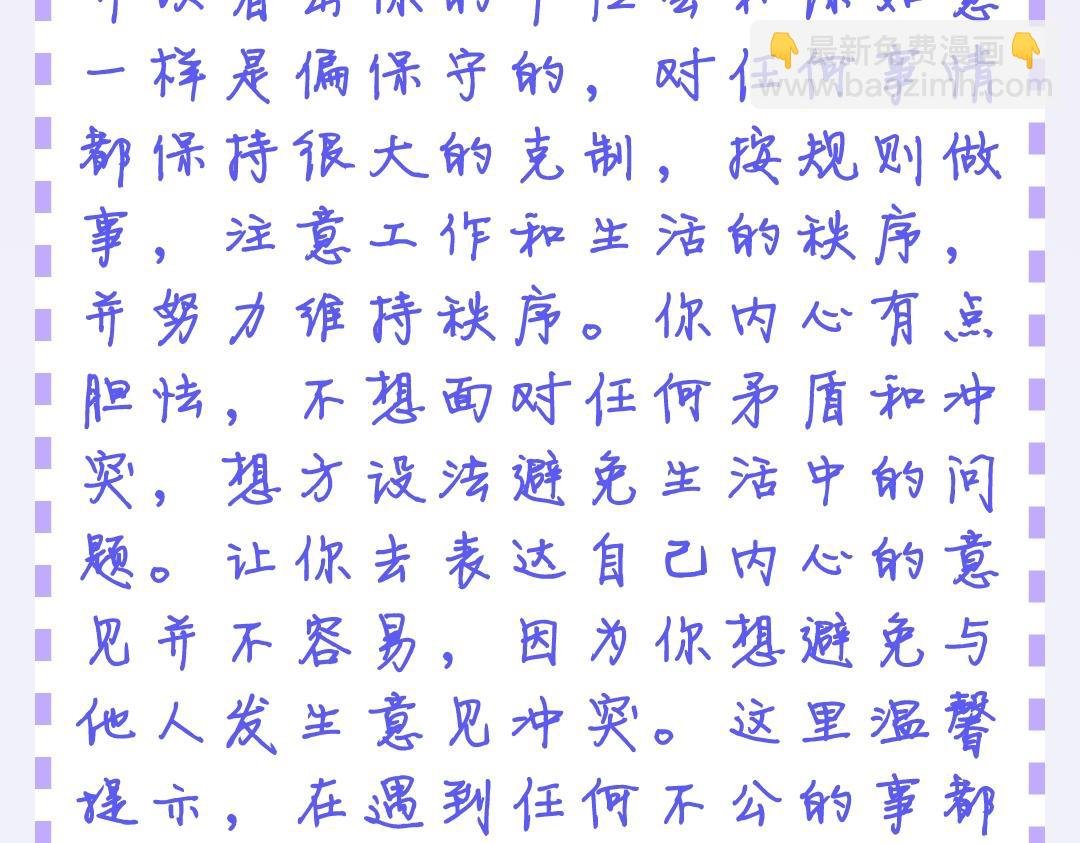 一样是偏保守的，对任何事情
最新免费漫画
www.baozimh.com
都保持很大的克制，按规则做
事，注意工作和生活的秩序，
并努力维持秩序。你内心有点
胆怯，不想面对任何矛盾和冲
突，想方设法避免生活中的问
题。让你去表达自己内心的意
见并不容易，因为你想避免与
他人发生意见冲突。这里温馨
提示，在遇到任何不公的事都